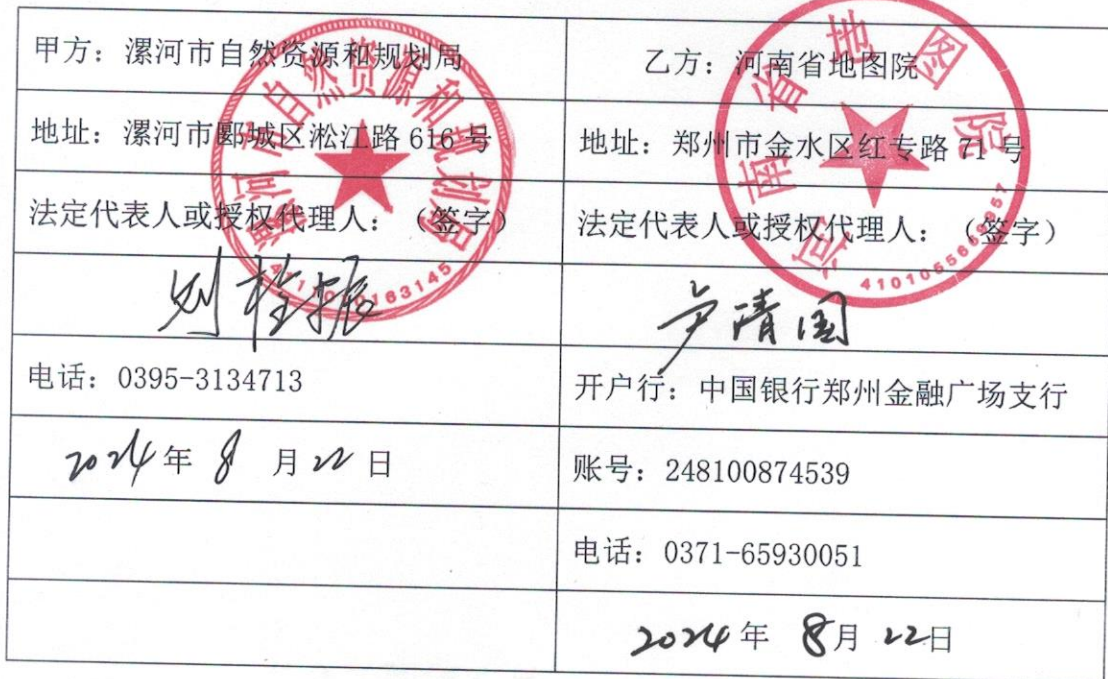 甲方：漯河市自然资源和规划局
乙方：河南省地图院
地址：漯河市郾城区淞江路 616 号
地址：郑州市金水区红专路 71 号
法定代表人或授权代理人：（签字）
法定代表人或授权代理人：（签字）
电话：0395-3134713
开户行：中国银行郑州金融广场支行
2024年 8 月 22 日
账号：248100874539
电话：0371-65930051
2024 年 8月 22日
漯河市自然资源和规划局
河南省地图院